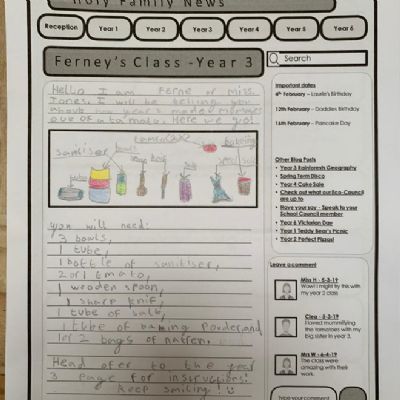 Holy Family News
Reception
Year 1
Year 2
Year 3
Year 4
Year 5
Year 6
Ferney's Class -Year 3
Search
Hello I am Ferne or miss.
Jones. I will be telling you
about our year 3 maney mummies
out of a tamato. Here we go!
saniliser
bowls
spoon
knif
Tomato X2
bakeing
you will need:
3 bowls,
1 tube,
1 bottle of sanitiser,
2 or 1 tmato,
1 wooden spoon,
1 sharp knif,
1 tube of salt,
1 tube of baking powder, and
1 or 2 bags of natren.
Head ofer to the year
3 page for instructions!
keep smiling!
Important dates
6th February – Laurie's Birthday
12th February – Daddies Birthday
16th February – Pancake Day
Other Blog Posts
Year 3 Rainforests Geography
Spring Term Disco
Year 4 Cake Sale
Check out what our Eco-Council
are up to
Have your say - Speak to your
School Council member
Year 6 Victorian Day
Year 5 Teddy Bear's Picnic
Year 2 Perfect Pizzas!
Leave a comment
Miss H - 5-3-19
Wow! I might try this with
my year 2 class
Clea - 5-3-19
I loved mummifying
the tomatoes with my
big sister in year 3.
Mrs W - 6-4-19
The class were
amazing with their
work.
Type your comment